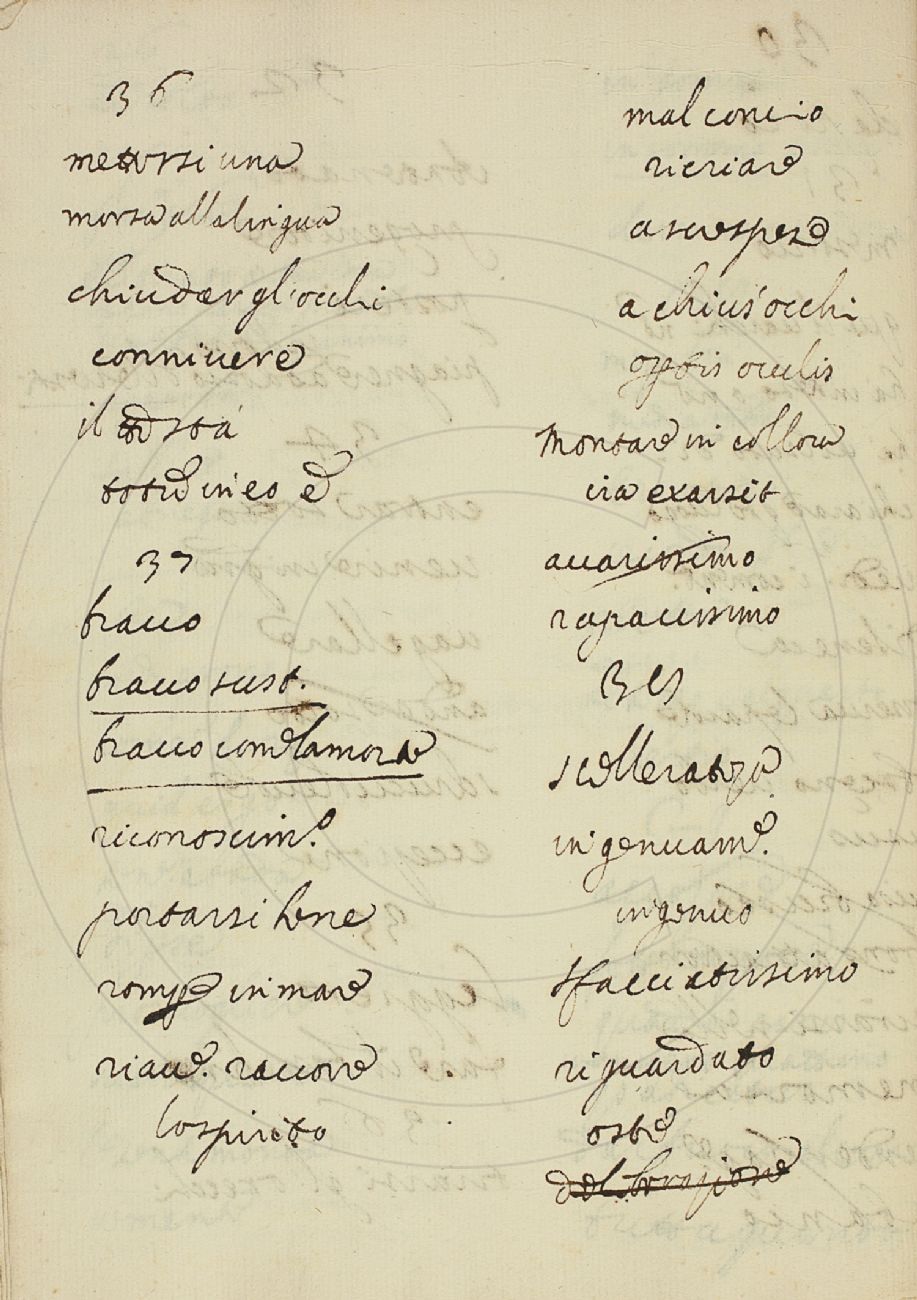 36
mettersi una
morsa alla lingua
chiuder gl'occhi
connivere
il sta
totum in eo e
37
bravo
bravo sust.
bravo com l'amore
riconoscim.o
portarsi bene
romper in mare
riave. raccorre
lo spirito
mal concio
ricriare
a suespese
a chius'occhi
optis oculis
Montare in collora
ira exarsit
avarissimo
rapacissimo
scelleratezza
ingenuam.e
ingenuo
sfacciatissimo
riguardato
oste